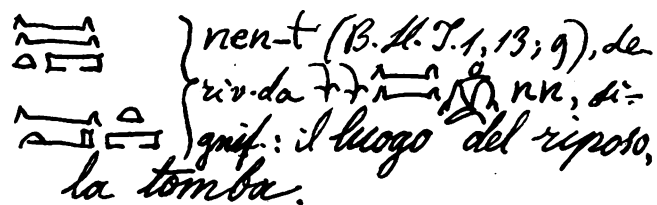 nen-t (B. H. I. 1, 13; 9), de
riv. da nn, si-
gnif.: il luogo del riposo,
la tomba.